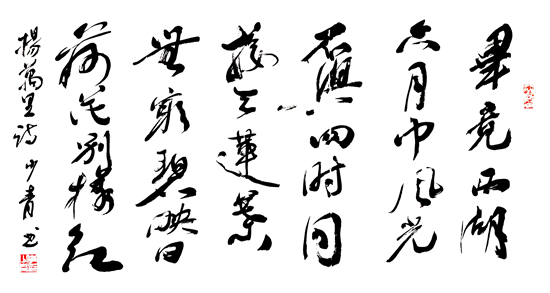 畢竟西湖
六月中风光
不與四时同
接天蓮葉
無窮碧映日
荷花别樣红
楊萬里诗 少青书